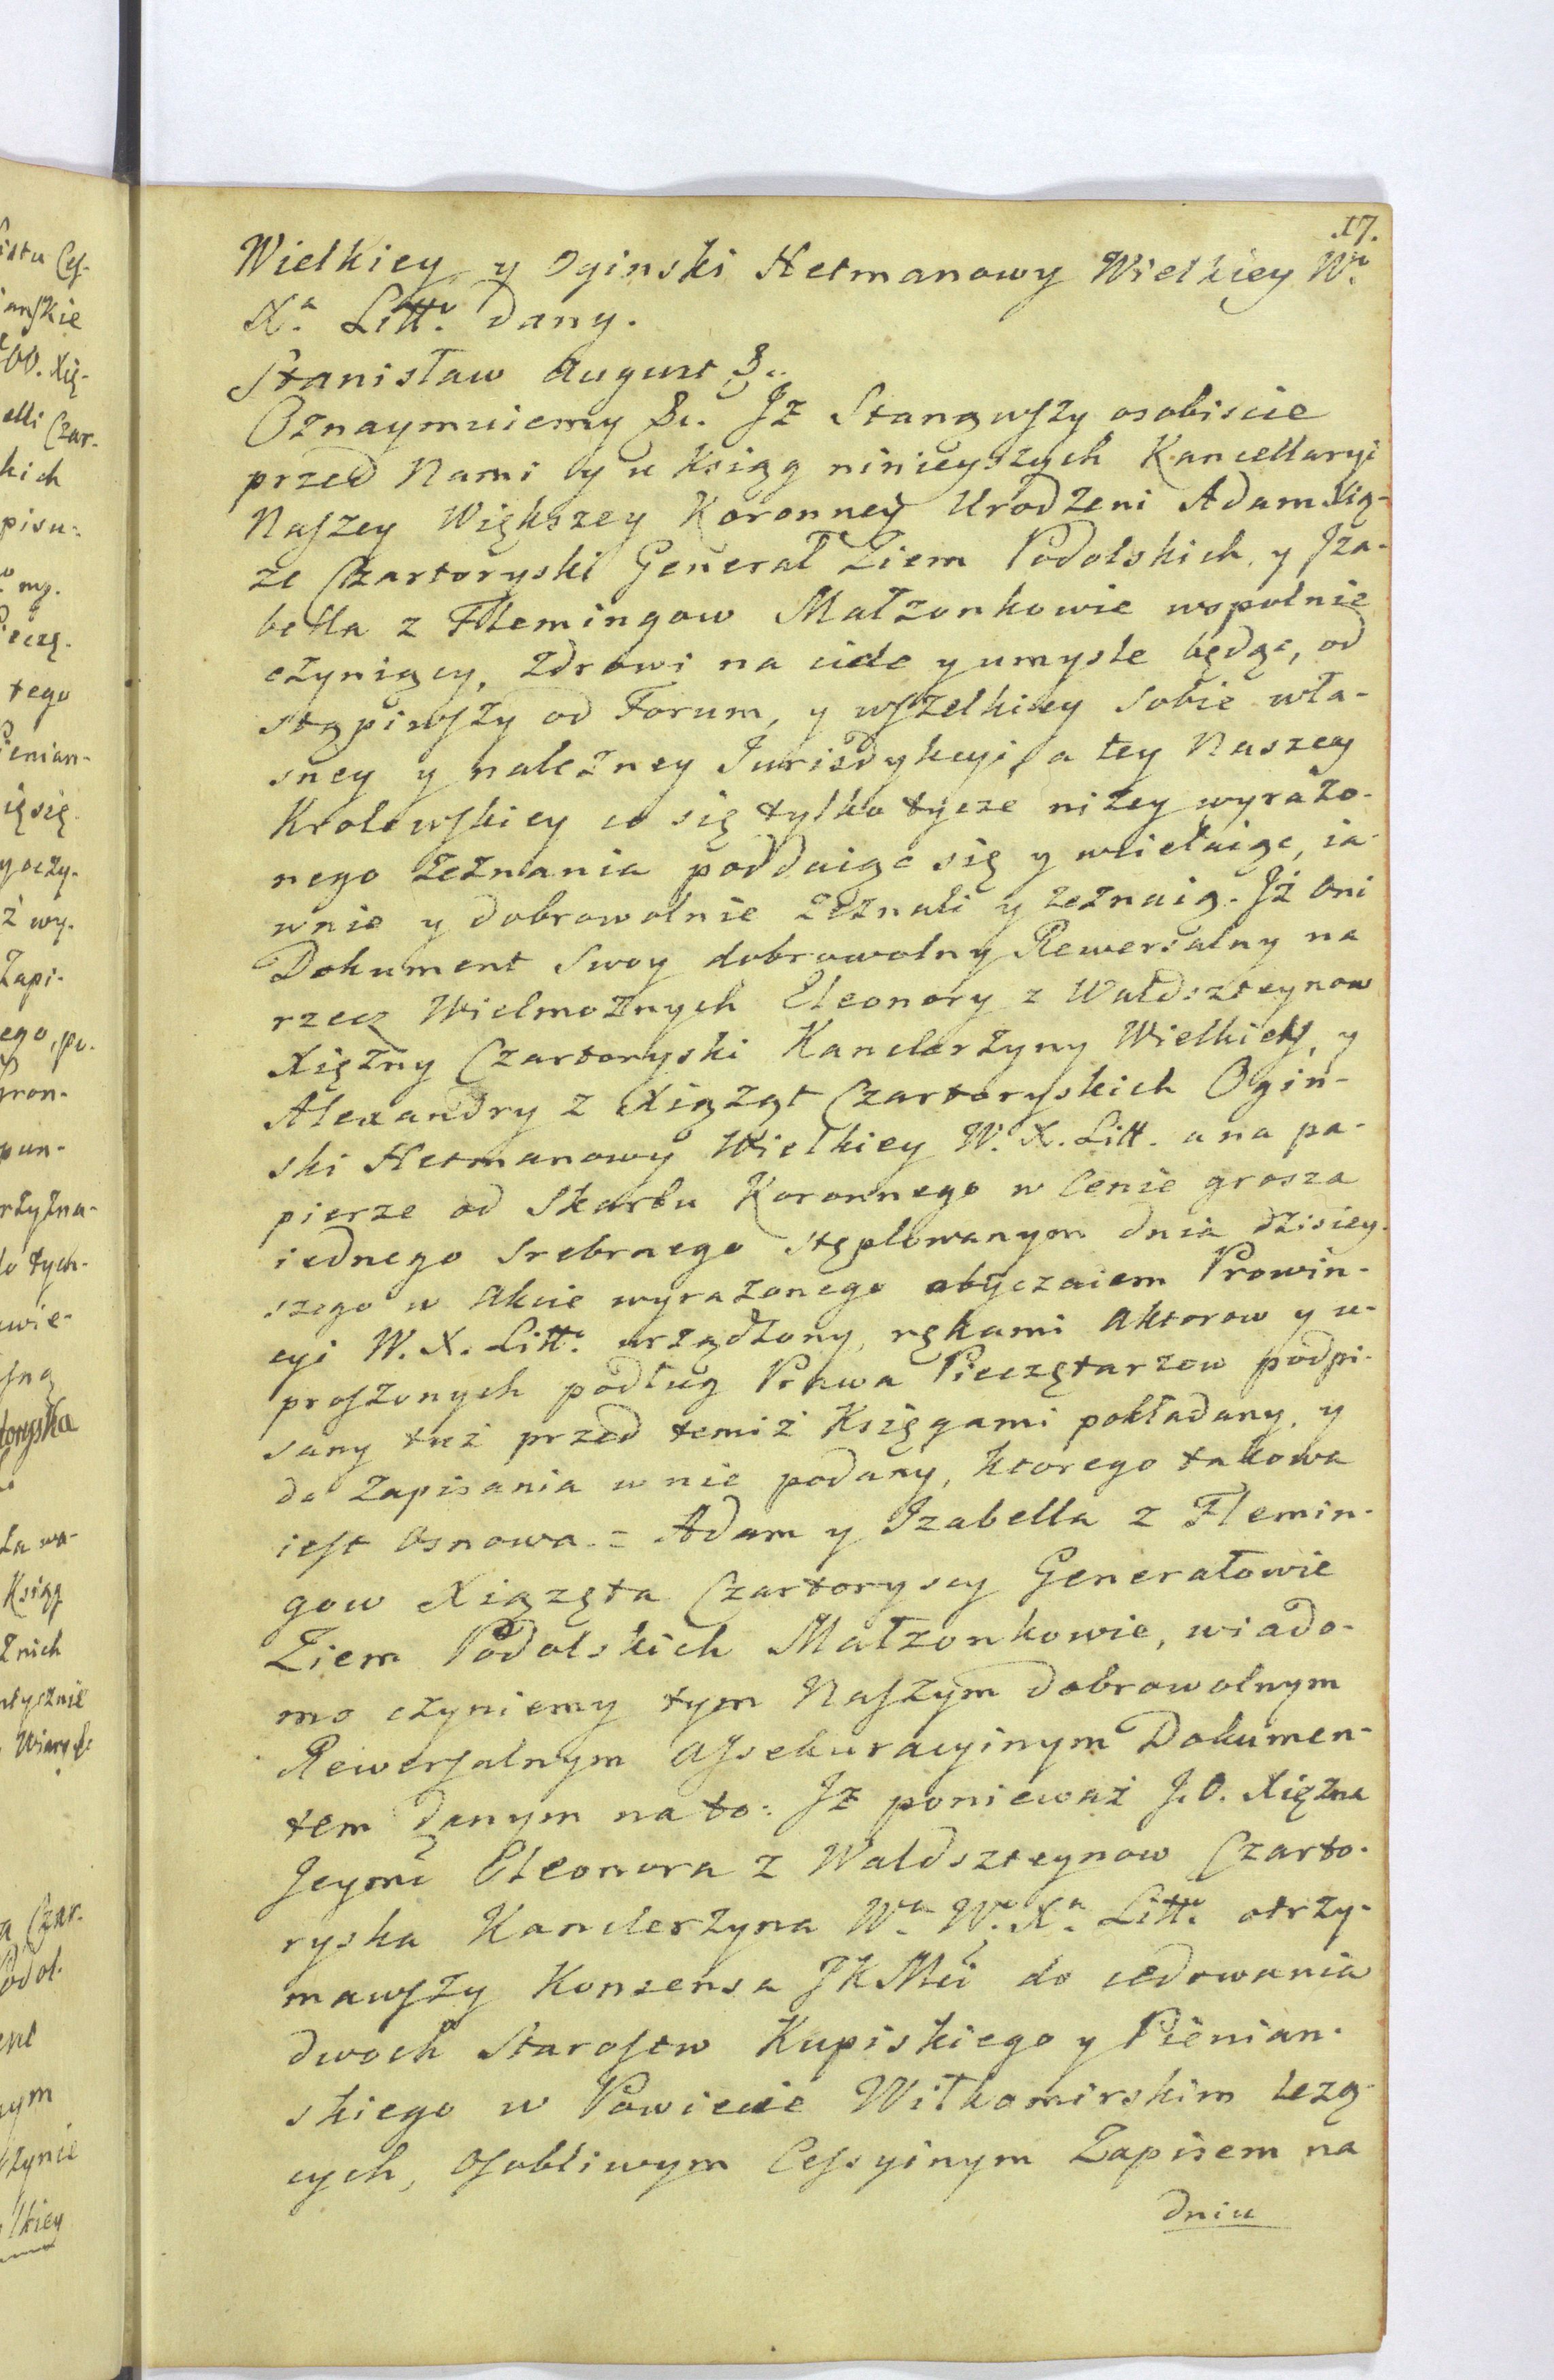 17.
Wielkiey y Oginski Hetmanowy Wielkiey Wo.
Xa. Litto. Dany.
Stanisław August &c.
Oznaymuiemy &c. Iż Stanąwszy osobiscie
przed Nami y u Ksiąg ninieyszych Kancellaryi
Naszey Większey Koronney Urodzeni Adam Xią-
ze Czartoryski Generał Ziem Podolskich, y Iza-
bella z Flemingow Małzonkowie wspolnie
czyniący, Zdrowi na ciele y umysle będąc, od
stąpiwszy od Forum, y wszelkiey Sobie wła-
sney y należney Jurisdykcyi, a tey Naszey
Krolewskiey co się tylko tycze niżey wyrażo-
nego zeznania poddaiąc się y wcielaiąc, ia-
wnie y dobrowolnie zeznali y zeznaią. Iż Oni
Dokument Swoy dobrowolny Rewersalny na
rzecz Wielmożnych Eleonory z Waldszteynow
Xiężny Czartoryski Kanclerzyny Wielkiey, y
Alexandry z Xiążąt Czartoryskich Ogin-
ski Hetmanowy Wielkiey W. X. Litt. a na pa-
pierze od Skarbu Koronnego w Cenie grosza
iednego Srebrnego stęplowanym dnia dzisiey-
szego w Akcie wyrażonego obyczaiem Prowin-
cyi W. X. Litto. urządzony, rękami Aktorow y u-
proszonych podług Prawa Pieczętarzow podpi-
sany tuż przed temiż Księgami pokładany, y
do Zapisania w nie podany, ktorego takowa
iest Osnowa = Adam y Izabella z Flemin-
gow Xiązęta Czartoryscy Generałowie
Ziem Podolskich Małzonkowie, wiado-
mo czyniemy tym Naszym dobrowolnym
Rewersalnym Assekuracyinym Dokumen-
tem danym na to: Iż ponieważ J. O. Xiężna
Jeymć Eleonora z Waldszteynow Czarto-
ryska Kanclerzyna Wa. Wo. Xa. Litto. otrzy-
mawszy Konsensa JKMci do cedowania
dwoch Starostw Kupiskiego y Pienian-
skiego w Powiecie Wiłkomirskim lezą-
cych, Osobliwym Cessyinym Zapisem na
dniu